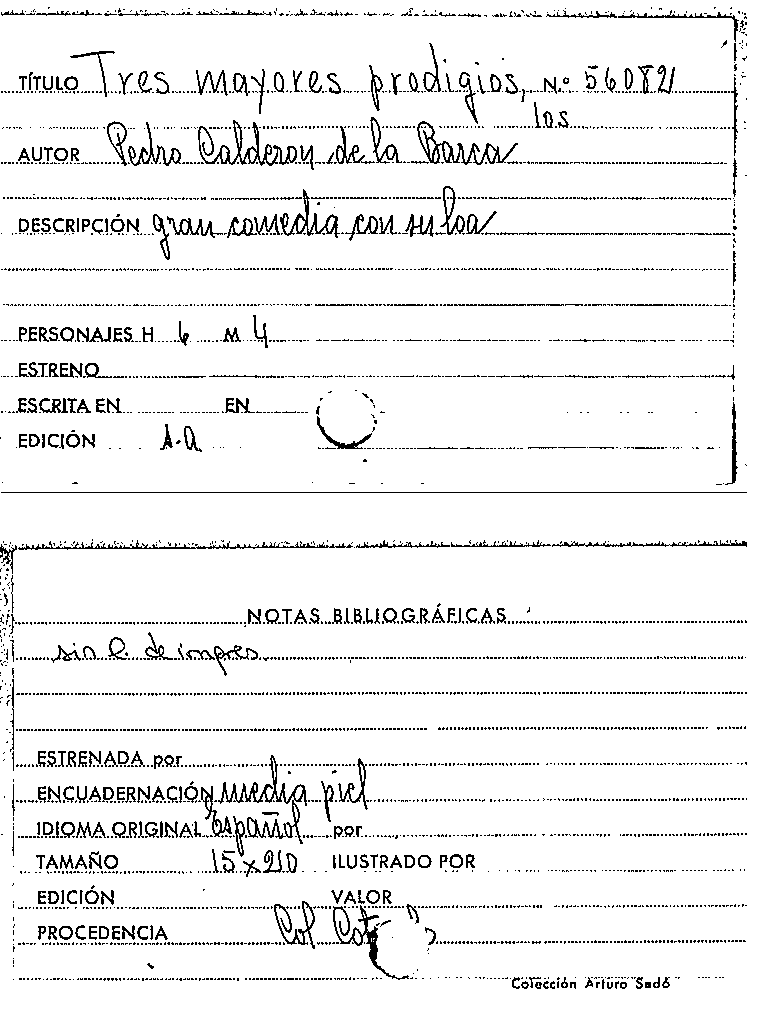 TÍTULO Tres mayores prodigios, N.º 560821
los
AUTOR Pedro Calderon de la Barca
DESCRIPCIÓN gran comedia con su loa
PERSONAJES H 6 M 4
ESTRENO
ESCRITA EN EN
EDICIÓN A.a
NOTAS BIBLIOGRÁFICAS
sin l. de impres.
ESTRENADA por
ENCUADERNACIÓN media piel
IDIOMA ORIGINAL Español por
TAMAÑO 15 x 210 ILUSTRADO POR
EDICIÓN VALOR
PROCEDENCIA Col
Colección Arturo Sedó